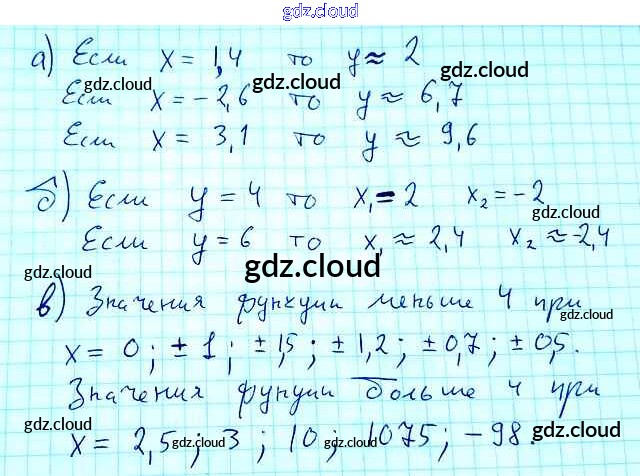 gdz.cloud
а) Если x = 1,4 то y ≈ 2
gdz.cloud gdz.cloud gdz.cloud
Если x = -2,6 то y ≈ 6,7
Если x = 3,1 то y ≈ 9,6
б) Если y = 4 то x₁ = 2 x₂ = -2
gdz.cloud
Если y = 6 то x₁ ≈ 2,4 x₂ ≈ -2,4
gdz.cloud gdz.cloud
в) Значения функции меньше 4 при
gdz.cloud
x = 0 ; ± 1 ; ± 1,5 ; ± 1,2 ; ± 0,7 ; ± 0,5.
Значения фунуции больше 4 при
gdz.cloud gdz.cloud
x = 2,5 ; 3 ; 10 ; 1075 ; - 98.
gdz.cloud gdz.cloud